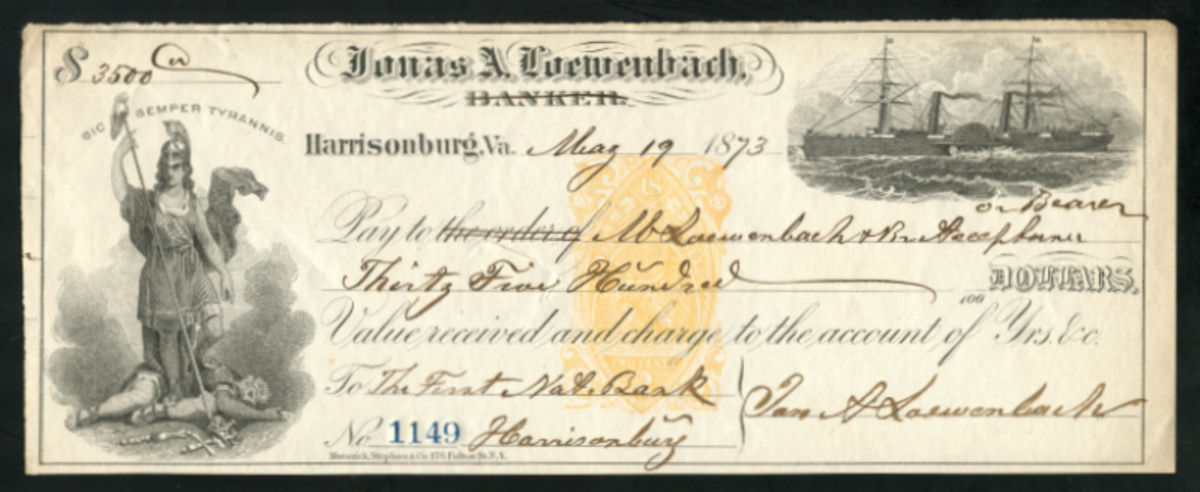 $ 3500
Jonas A. Loewenbach,
BANKER.
SIC SEMPER TYRANNIS.
Harrisonburg, Va. May 19 1873
or Bearer
Pay to the order of M Loewenbach & Br
Thirty Five Hundred DOLLARS,
100
Value received and charge to the account of Yrs. &c.
To The First Nat. Bank
Jonas A Loewenbach
No 1149 Harrisonburg
Maverick, Stephan & Co. 176 Fulton St. N.Y.